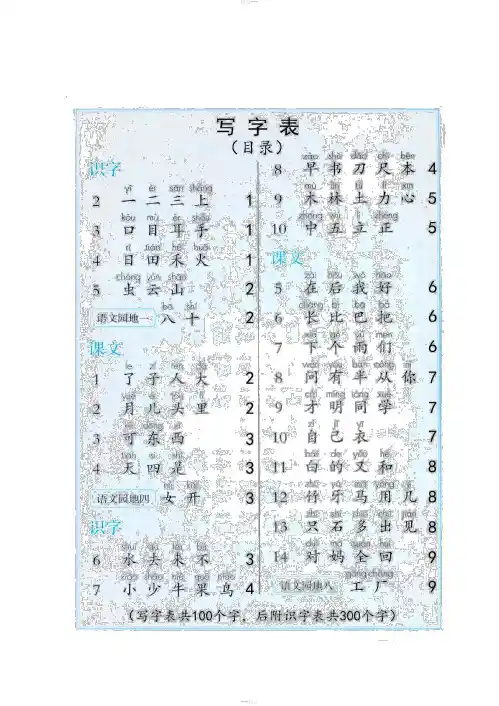 写字表
(目录)
识字
yī èr sān shàng
2 一 二 三 上 1
kǒu mù ěr shǒu
3 口 目 耳 手 1
rì tián hé huǒ
4 日 田 禾 火 1
chóng yún shān
5 虫 云 山 2
bā shí
语文园地一 八 十 2
课文
le zǐ rén dà
1 了 子 人 大 2
yuè ér tóu lǐ
2 月 儿 头 里 2
kě dōng xī
3 可 东 西 3
tiān sì shì
4 天 四 是 3
nǚ kāi
语文园地四 女 开 3
识字
shuǐ qù lái bù
6 水 去 来 不 3
xiǎo shǎo niú guǒ niǎo
7 小 少 牛 果 鸟 4
zǎo shū dāo chǐ běn
8 早 书 刀 尺 本 4
mù lín tǔ lì xīn
9 木 林 土 力 心 5
zhōng wǔ lì zhèng
10 中 五 立 正 5
课文
zài hòu wǒ hǎo
5 在 后 我 好 6
cháng bǐ bā bǎ
6 长 比 巴 把 6
xià gè yǔ men
7 下 个 雨 们 6
wèn yǒu bàn cóng nǐ
8 问 有 半 从 你 7
cái míng tóng xué
9 才 明 同 学 7
zì jǐ yī
10 自 己 衣 7
bái de yòu hé
11 白 的 又 和 8
zhú yá mǎ yòng jǐ
12 竹 牙 马 用 几 8
zhǐ shí duō chū jiàn
13 只 石 多 出 见 8
duì mā quán huí
14 对 妈 全 回 9
gōng chǎng
语文园地八 工 厂 9
(写字表共100个字，后附识字表共300个字)